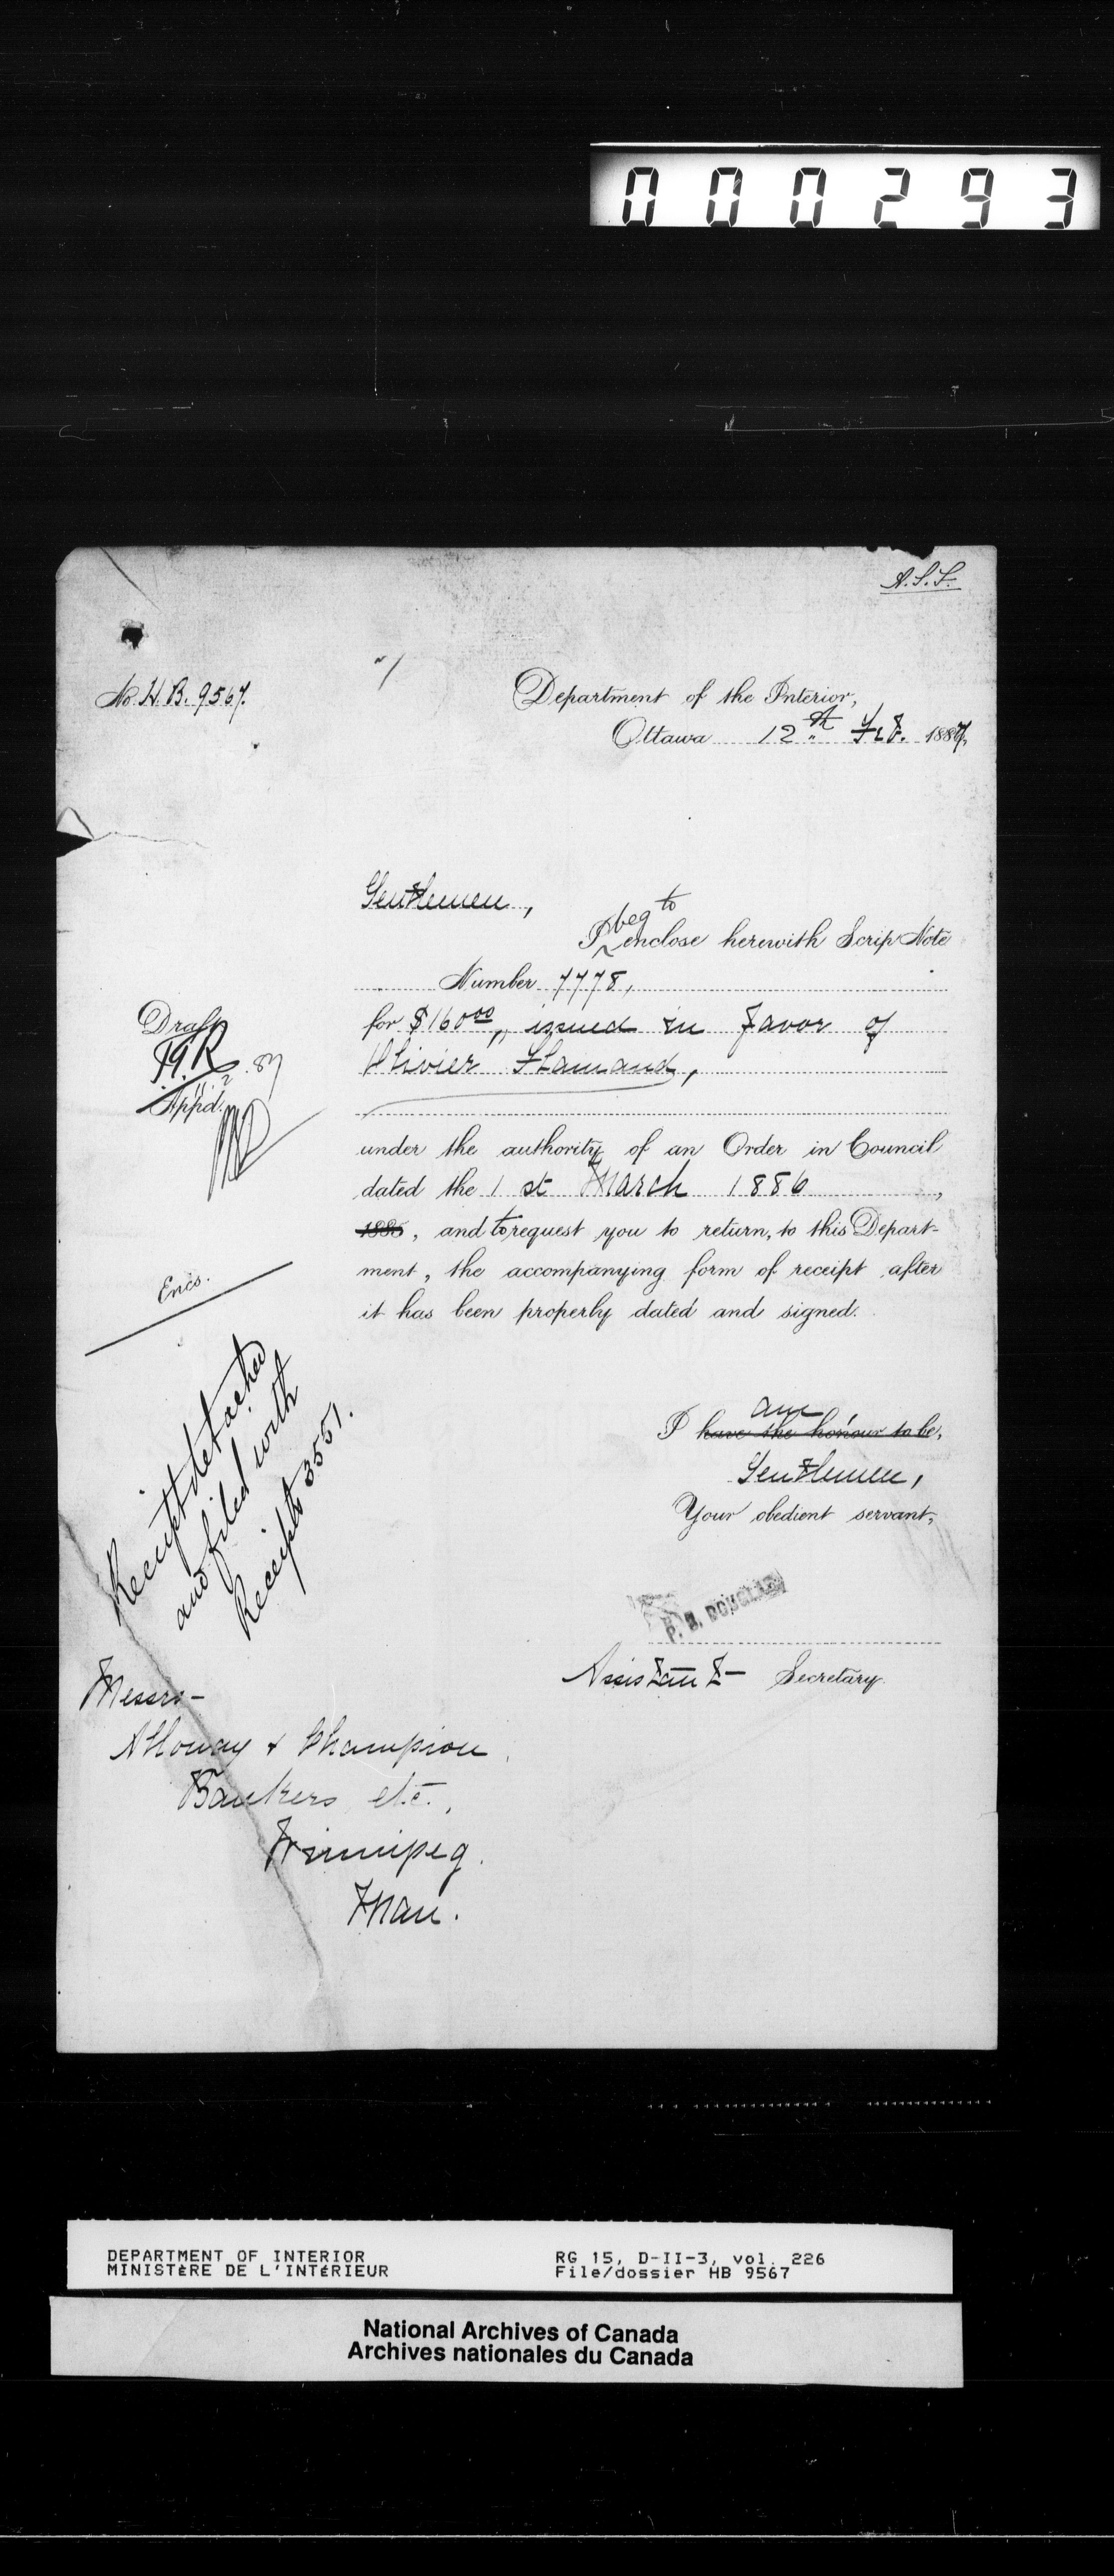 000293
A.S.S.
No. H.B. 9567.
Department of the Interior,
Ottawa 12th Feb. 1887,
Gentlemen,
I beg to enclose herewith Scrip Note
Number 7778,
for $160 00, issued in favor of
Olivier Flamand,
under the authority of an Order in Council
dated the 1st March 1886,
1886, and to request you to return, to this Depart-
ment, the accompanying form of receipt after
it has been properly dated and signed.
Draft
2. 87
Appd.
Encs.
Receipt detached
and filed with
Receipts 3551.
I am have the honour to be,
Gentlemen,
Your obedient servant,
P. B. DOUGLAS
Assistant Secretary.
Messrs-
Alloway & Champion
Bankers etc.,
Winnipeg.
Man.
DEPARTMENT OF INTERIOR
MINISTÈRE DE L'INTÉRIEUR
RG 15, D-II-3, vol. 226
File/dossier HB 9567
National Archives of Canada
Archives nationales du Canada